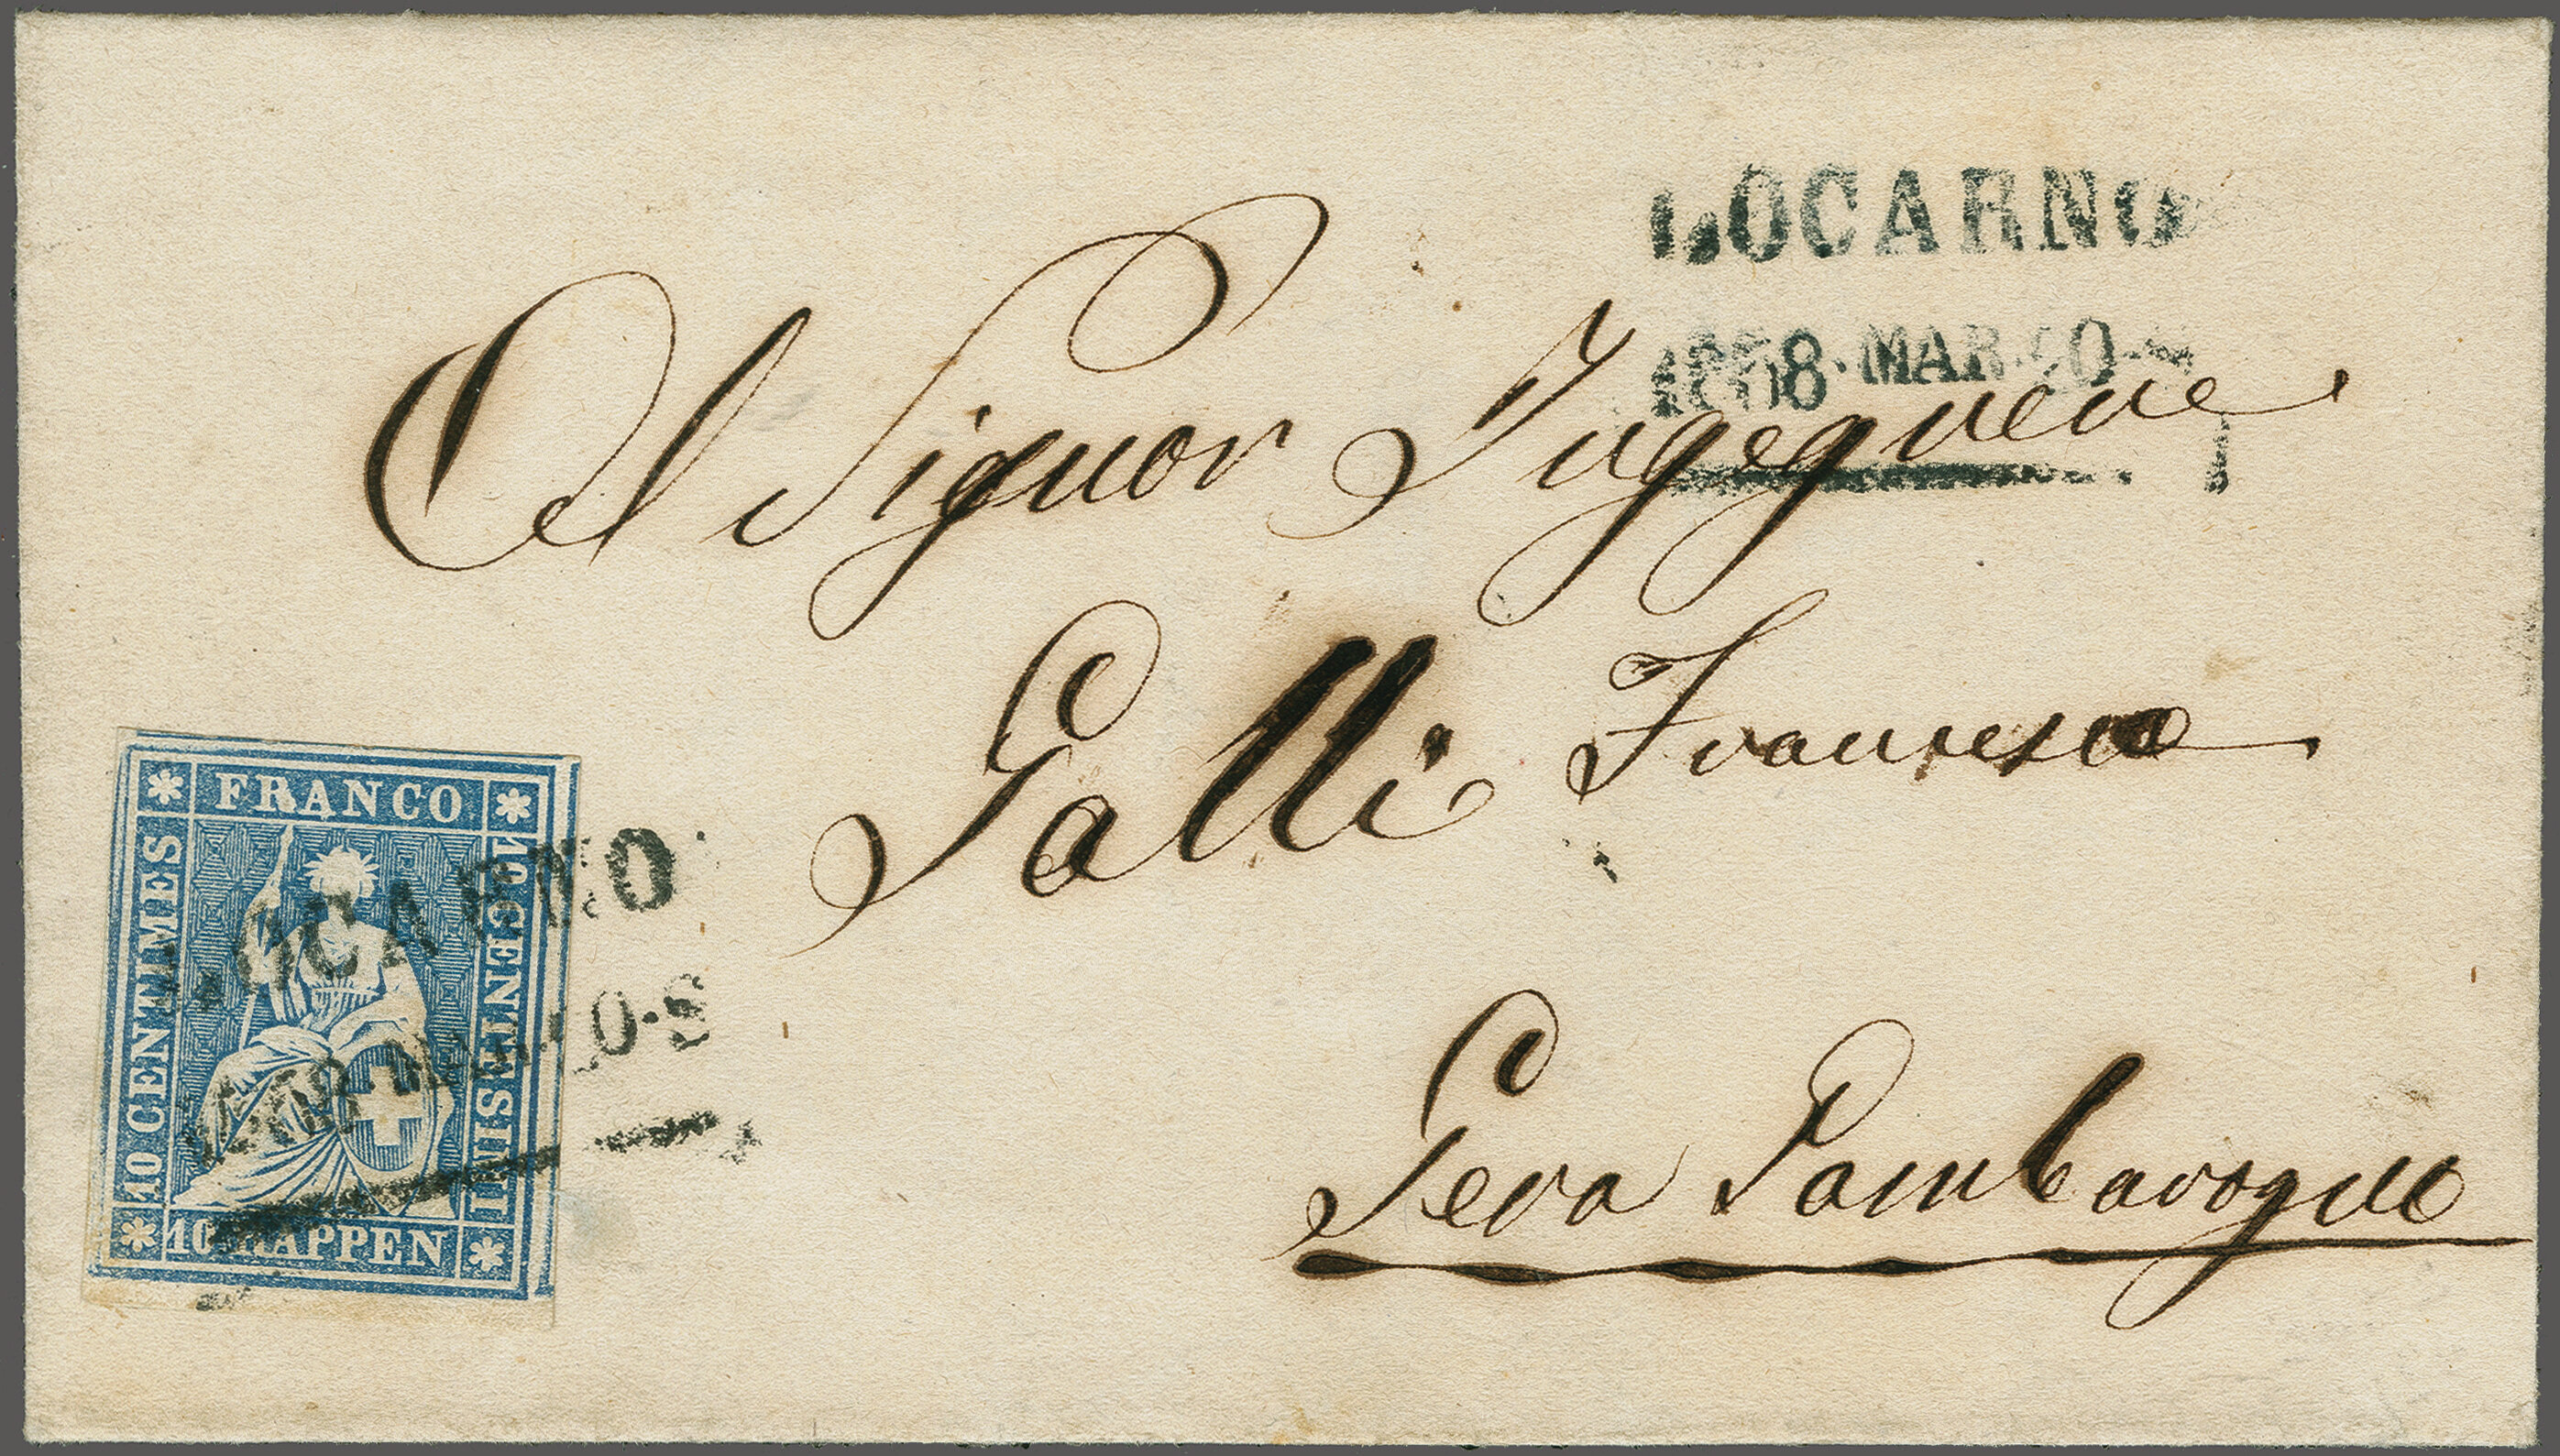 LOCARNO
1858·MAR·10·
Al Signor Ingegnere
Galli Francesco
Gera Gambarogno
FRANCO
10 CENTIMES
10 CENTESIMI
10 RAPPEN
LOCARNO
1858·MAR·10·S